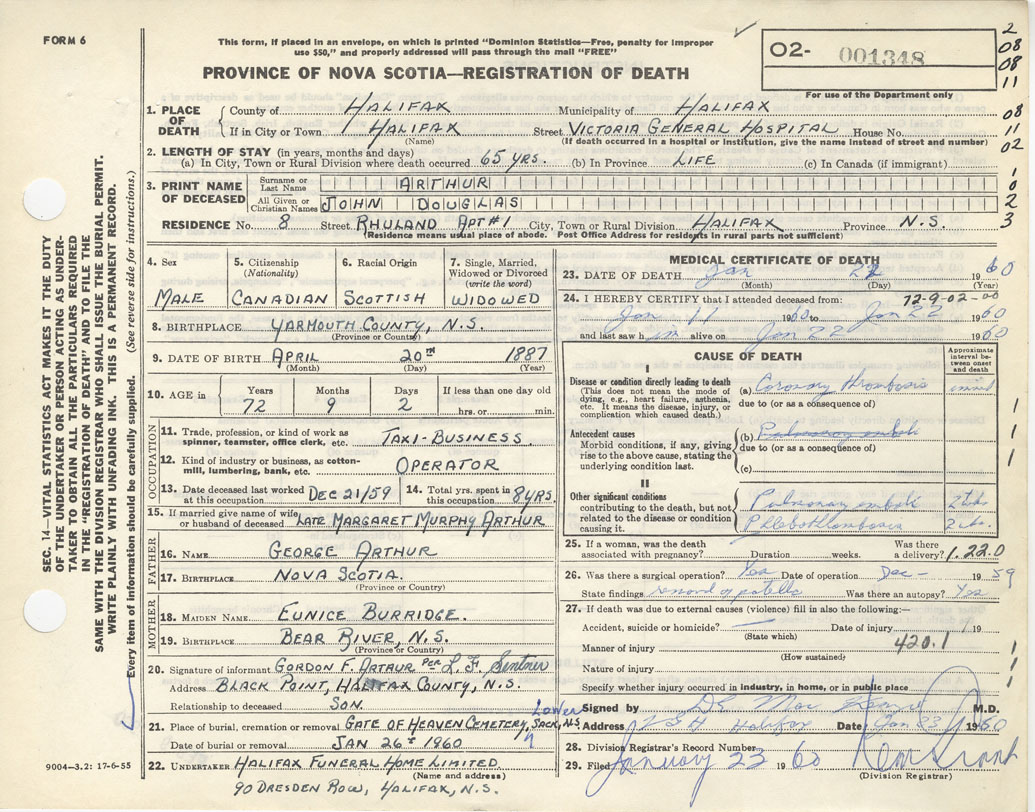 FORM 6
This form, if placed in an envelope, on which is printed "Dominion Statistics—Free, penalty for improper
use $50," and properly addressed will pass through the mail "FREE"
PROVINCE OF NOVA SCOTIA—REGISTRATION OF DEATH
O2- 001348
For use of the Department only
2
08
08
11
08
11
02
1
0
2
3
1. PLACE OF DEATH
County of HALIFAX Municipality of HALIFAX
If in City or Town HALIFAX Street VICTORIA GENERAL HOSPITAL House No.
(Name) (If death occurred in a hospital or institution, give the name instead of street and number)
2. LENGTH OF STAY (in years, months and days)
(a) In City, Town or Rural Division where death occurred 65 YRS. (b) In Province LIFE (c) In Canada (if immigrant)
3. PRINT NAME OF DECEASED
Surname or Last Name ARTHUR
All Given or Christian Names JOHN DOUGLAS
RESIDENCE No. 8 Street RHULAND APT #1 City, Town or Rural Division HALIFAX Province N.S.
(Residence means usual place of abode. Post Office Address for residents in rural parts not sufficient)
4. Sex MALE
5. Citizenship (Nationality) CANADIAN
6. Racial Origin SCOTTISH
7. Single, Married, Widowed or Divorced (write the word) WIDOWED
8. BIRTHPLACE YARMOUTH COUNTY, N.S.
(Province or Country)
9. DATE OF BIRTH APRIL 20TH 1887
(Month) (Day) (Year)
10. AGE in Years 72 Months 9 Days 2 If less than one day old hrs. or min.
OCCUPATION
11. Trade, profession, or kind of work as spinner, teamster, office clerk, etc. TAXI-BUSINESS
12. Kind of industry or business, as cotton-mill, lumbering, bank, etc. OPERATOR
13. Date deceased last worked at this occupation DEC 21/59
14. Total yrs. spent in this occupation 8 YRS.
15. If married give name of wife or husband of deceased LATE MARGARET MURPHY ARTHUR
FATHER
16. NAME GEORGE ARTHUR
17. BIRTHPLACE NOVA SCOTIA.
(Province or Country)
MOTHER
18. MAIDEN NAME EUNICE BURRIDGE.
19. BIRTHPLACE BEAR RIVER, N.S.
(Province or Country)
20. Signature of informant GORDON F. ARTHUR Per L. F.
Address BLACK POINT, HALIFAX COUNTY, N.S.
Relationship to deceased SON.
21. Place of burial, cremation or removal GATE OF HEAVEN CEMETERY, Lower SACK, N.S
Date of burial or removal JAN 26th 1960
22. UNDERTAKER HALIFAX FUNERAL HOME LIMITED
(Name and address)
90 DRESDEN ROW, HALIFAX, N.S.
MEDICAL CERTIFICATE OF DEATH
23. DATE OF DEATH Jan 22 1960
(Month) (Day) (Year)
24. I HEREBY CERTIFY that I attended deceased from: 72-9-02-00
Jan 11 1960 to Jan 22 1960
and last saw h im alive on Jan 22 1960
CAUSE OF DEATH
Approximate interval between onset and death
I
Disease or condition directly leading to death
(This does not mean the mode of dying, e.g., heart failure, asthenia, etc. It means the disease, injury, or complication which caused death.)
(a) Coronary thrombosis
due to (or as a consequence of)
Antecedent causes
Morbid conditions, if any, giving rise to the above cause, stating the underlying condition last.
(b) Pulmonary emboli
due to (or as a consequence of)
(c)
II
Other significant conditions contributing to the death, but not related to the disease or condition causing it.
Pulmonary emboli
Phlebothrombosis
1
1
1
25. If a woman, was the death associated with pregnancy? Duration weeks. Was there a delivery? 1.22.0
26. Was there a surgical operation? Yes Date of operation Dec - 1959
State findings removal of patella Was there an autopsy? Yes
27. If death was due to external causes (violence) fill in also the following:—
Accident, suicide or homicide? Date of injury 19
(State which)
Manner of injury 420.1
(How sustained)
Nature of injury
Specify whether injury occurred in industry, in home, or in public place
1
1
1
Signed by M.D.
Address V G H Halifax Date Jan 23 1960
28. Division Registrar's Record Number
29. Filed January 23 1960
(Division Registrar)
SEC. 14—VITAL STATISTICS ACT MAKES IT THE DUTY
OF THE UNDERTAKER OR PERSON ACTING AS UNDER-
TAKER TO OBTAIN ALL THE PARTICULARS REQUIRED
IN THE "REGISTRATION OF DEATH" AND TO FILE THE
SAME WITH THE DIVISION REGISTRAR WHO SHALL ISSUE THE BURIAL PERMIT.
WRITE PLAINLY WITH UNFADING INK. THIS IS A PERMANENT RECORD.
Every item of information should be carefully supplied. (See reverse side for instructions.)
9004—3.2: 17-6-55